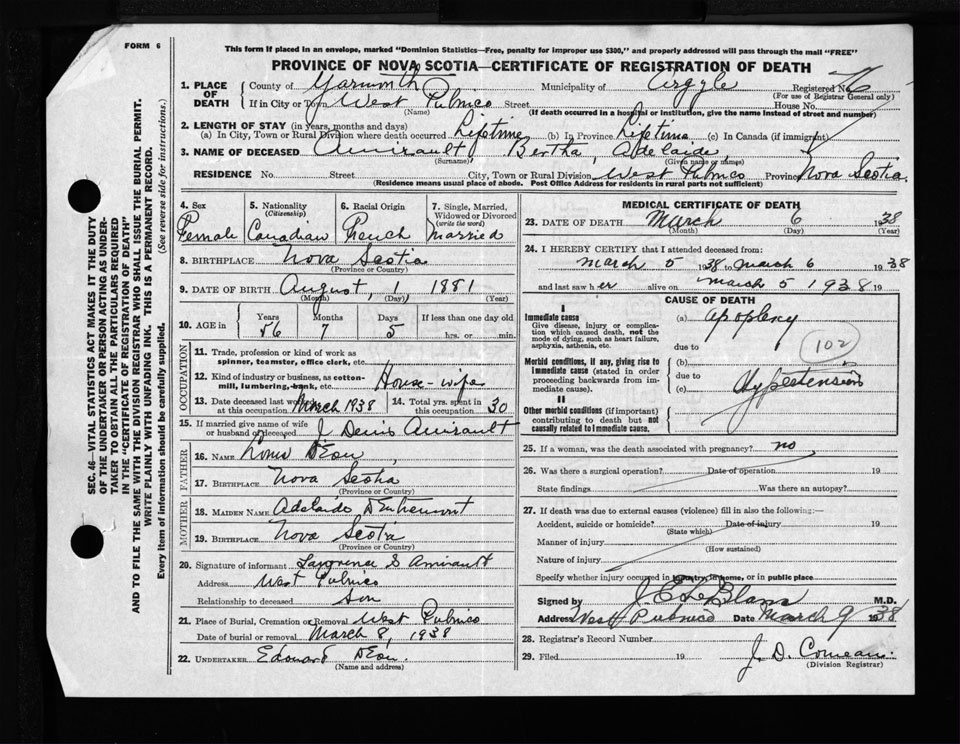 FORM 6
This form if placed in an envelope, marked "Dominion Statistics—Free, penalty for improper use $300," and properly addressed will pass through the mail "FREE"
PROVINCE OF NOVA SCOTIA—CERTIFICATE OF REGISTRATION OF DEATH
1. PLACE OF DEATH County of Yarmouth Municipality of Argyle Registered No.
(For use of Registrar General only)
If in City or Town West Pubnico Street House No.
(Name) (If death occurred in a hospital or institution, give the name instead of street and number)
2. LENGTH OF STAY (in years, months and days)
(a) In City, Town or Rural Division where death occurred Lifetime (b) In Province Lifetime (c) In Canada (if immigrant)
3. NAME OF DECEASED Amirault, Bertha, Adelaide
(Surname) (Given name or names)
RESIDENCE No. Street City, Town or Rural Division West Pubnico Province Nova Scotia.
(Residence means usual place of abode. Post Office Address for residents in rural parts not sufficient)
SEC. 46—VITAL STATISTICS ACT MAKES IT THE DUTY
OF THE UNDERTAKER OR PERSON ACTING AS UNDER-
TAKER TO OBTAIN ALL THE PARTICULARS REQUIRED
IN THE "CERTIFICATE OF REGISTRATION OF DEATH"
AND TO FILE THE SAME WITH THE DIVISION REGISTRAR WHO SHALL ISSUE THE BURIAL PERMIT.
WRITE PLAINLY WITH UNFADING INK. THIS IS A PERMANENT RECORD.
Every item of information should be carefully supplied. (See reverse side for instructions.)
4. Sex 5. Nationality (Citizenship) 6. Racial Origin 7. Single, Married, Widowed or Divorced (write the word)
Female Canadian French Married
8. BIRTHPLACE Nova Scotia
(Province or Country)
9. DATE OF BIRTH August, 1 1881
(Month) (Day) (Year)
10. AGE in Years Months Days If less than one day old
56 7 5 hrs. or min.
OCCUPATION
11. Trade, profession or kind of work as
spinner, teamster, office clerk, etc.
12. Kind of industry or business, as cotton-
mill, lumbering, bank, etc. House-wife
13. Date deceased last worked at this occupation March 1938 14. Total yrs. spent in this occupation 30
15. If married give name of wife or husband of deceased J Denis Amirault
FATHER
16. NAME D'Eon
17. BIRTHPLACE Nova Scotia
(Province or Country)
MOTHER
18. MAIDEN NAME Adelaide D'Entremont
19. BIRTHPLACE Nova Scotia
(Province or Country)
20. Signature of informant Lawrence S Amirault
Address West Pubnico
Relationship to deceased Son
21. Place of Burial, Cremation or Removal West Pubnico
Date of burial or removal March 8, 1938
22. UNDERTAKER Edouard D'Eon.
(Name and address)
MEDICAL CERTIFICATE OF DEATH
23. DATE OF DEATH March 6 1938
(Month) (Day) (Year)
24. I HEREBY CERTIFY that I attended deceased from:
March 5 1938 to March 6 1938
and last saw her alive on March 5 1938 19
CAUSE OF DEATH
I
Immediate cause (a) apoplexy
Give disease, injury or complica-
tion which caused death, not the
mode of dying, such as heart failure,
asphyxia, asthenia, etc. due to
102
Morbid conditions, if any, giving rise to (b)
immediate cause (stated in order due to
proceeding backwards from im-
mediate cause). (c) Hypertension
II
Other morbid conditions (if important)
contributing to death but not
causally related to immediate cause.
25. If a woman, was the death associated with pregnancy? no
26. Was there a surgical operation? Date of operation 19
State findings Was there an autopsy?
27. If death was due to external causes (violence) fill in also the following:—
Accident, suicide or homicide? Date of injury 19
(State which)
Manner of injury
(How sustained)
Nature of injury
Specify whether injury occurred in industry, in home, or in public place
Signed by J. E. LeBlanc M.D.
Address West Pubnico Date March 9 1938
28. Registrar's Record Number
29. Filed 19 J. D. Comeau.
(Division Registrar)